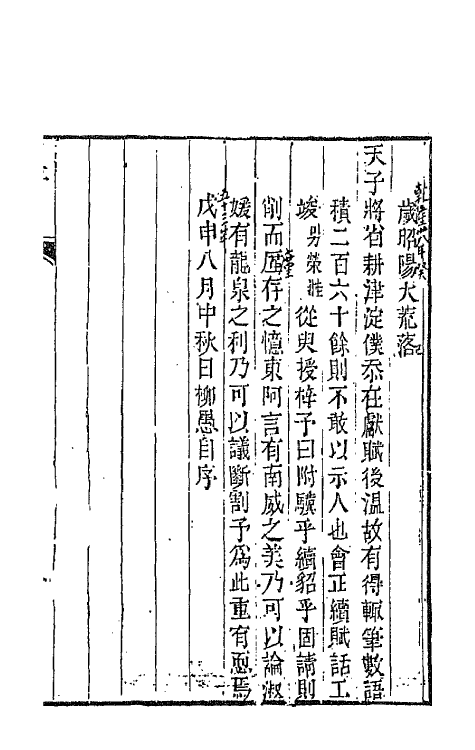 乾隆卅八年癸
歲昭陽大荒落巳
天子將省耕津淀僕忝在獻賦後溫故有得輒筆數語
積二百六十餘則不敢以示人也會正續賦話工
竣男榮從臾授梓予曰附驥乎續貂乎固請則
削而存之憶東阿言有南威之美乃可以論淑
媛有龍泉之利乃可以議斷割予爲此重有恧焉
五十三年
戊申八月中秋日柳愚自序